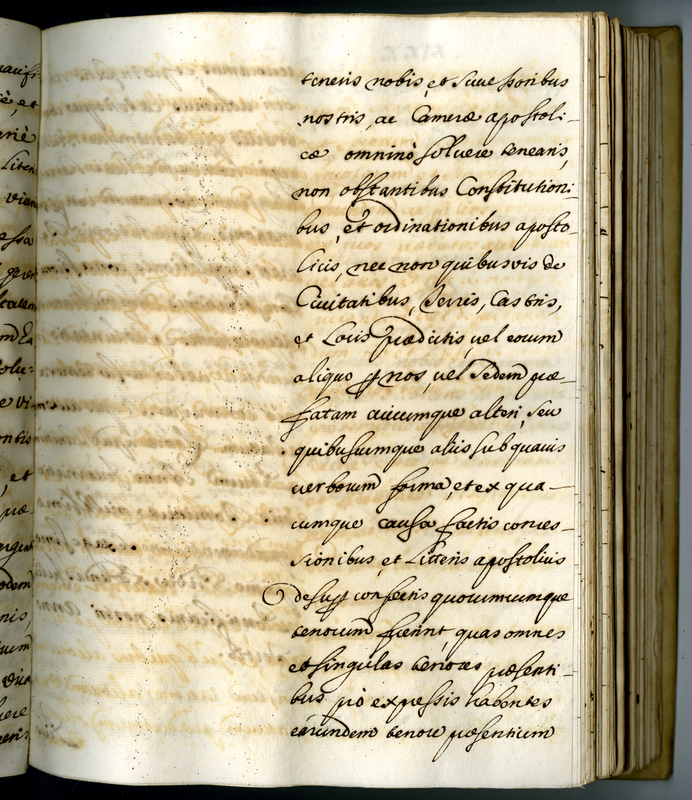 teneris nobis, et Successoribus
nostris, ac Cameræ apostoli-
cæ omninò soluere tenearis,
non obstantibus Constitutioni-
bus, et ordinationibus aposto-
licis, nec non quibusvis de
Ciuitatibus, Terris, Castris,
et Locis prædictis, vel eorum
aliquo p nos, vel Sedem præ-
fatam cuicumque alteri, seu
quibuscumque aliis sub quauis
uerborum forma, et ex qua-
cumque causa factis conces-
sionibus et Litteris apostolicis
desup confectis quorumcumque
tenorum fuerint, quas omnes
et singulas tenores præsenti-
bus pro expressis habentes
earundem tenore præsentium